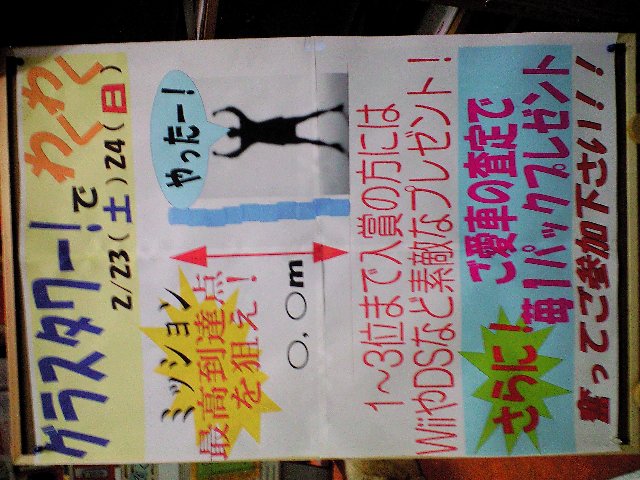 グラスタワー!で わくわく
2/23(土)24(日)
やったー!
ミッション
最高到達点
を狙え!
〇.〇m
1～3位まで入賞の方には
WiiやDSなど素敵なプレゼント!
さらに!
ご愛車の査定で
苺1パックプレゼント
奮ってご参加下さい!!!